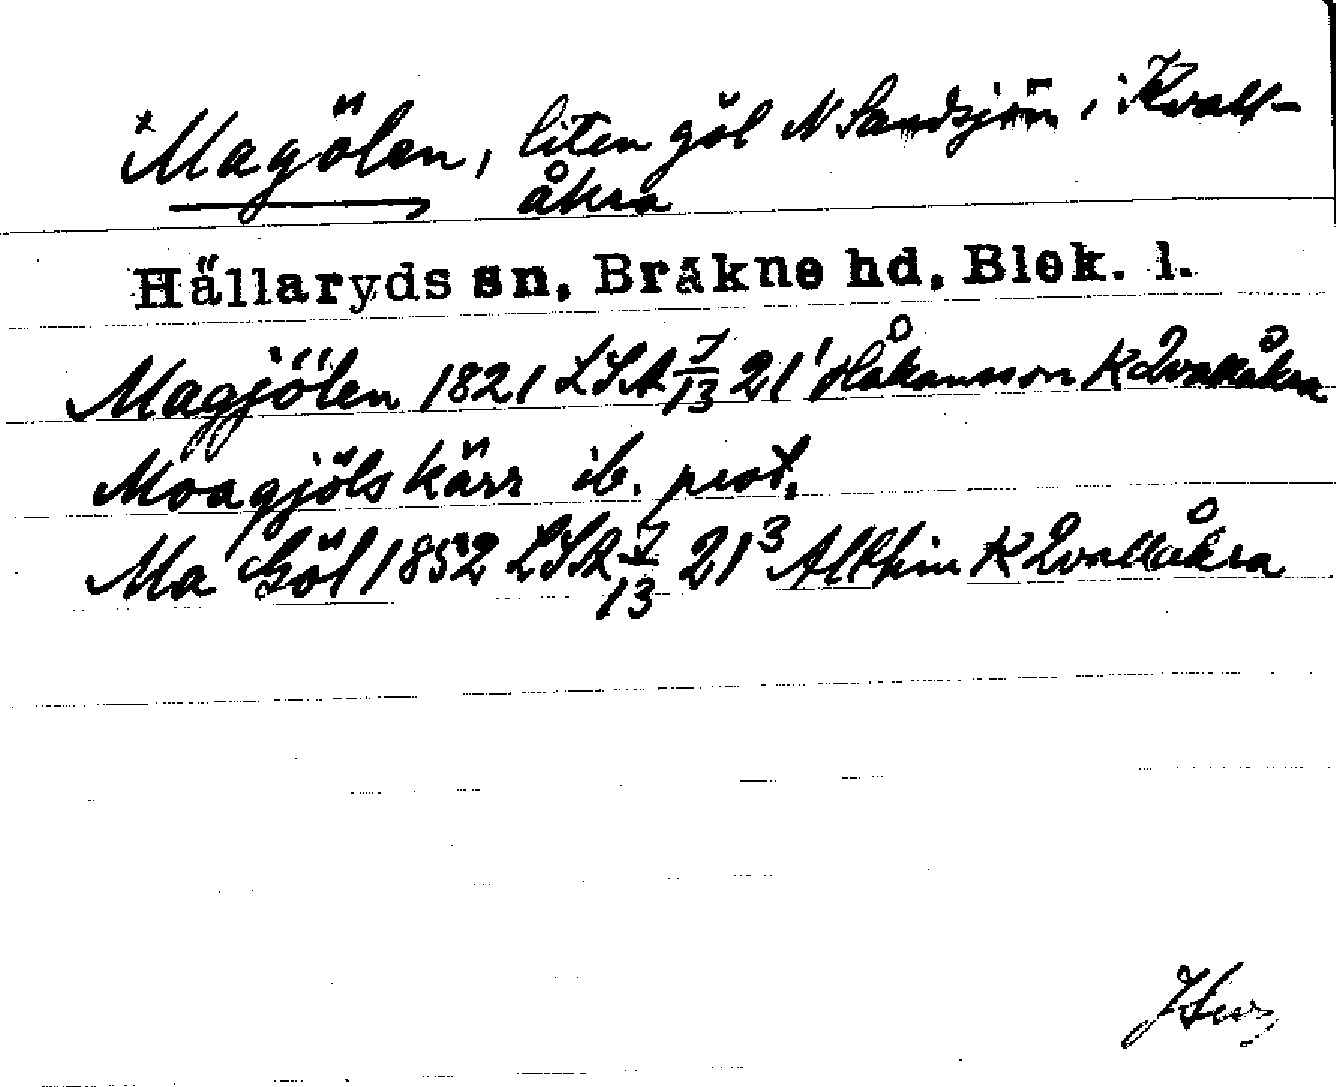 *Magölen, liten göl N Sandsjön i Kvall-
åkra
Hällaryds sn, Bräkne hd, Blek. l.
Magjölen 1821 LSA 7/13 21¹ Håkansson K Qvallåkra
Moagjölskärr ib. prot.
Ma Göl 1852 LSA 7/13 21³ Allthin K Qvallåkra